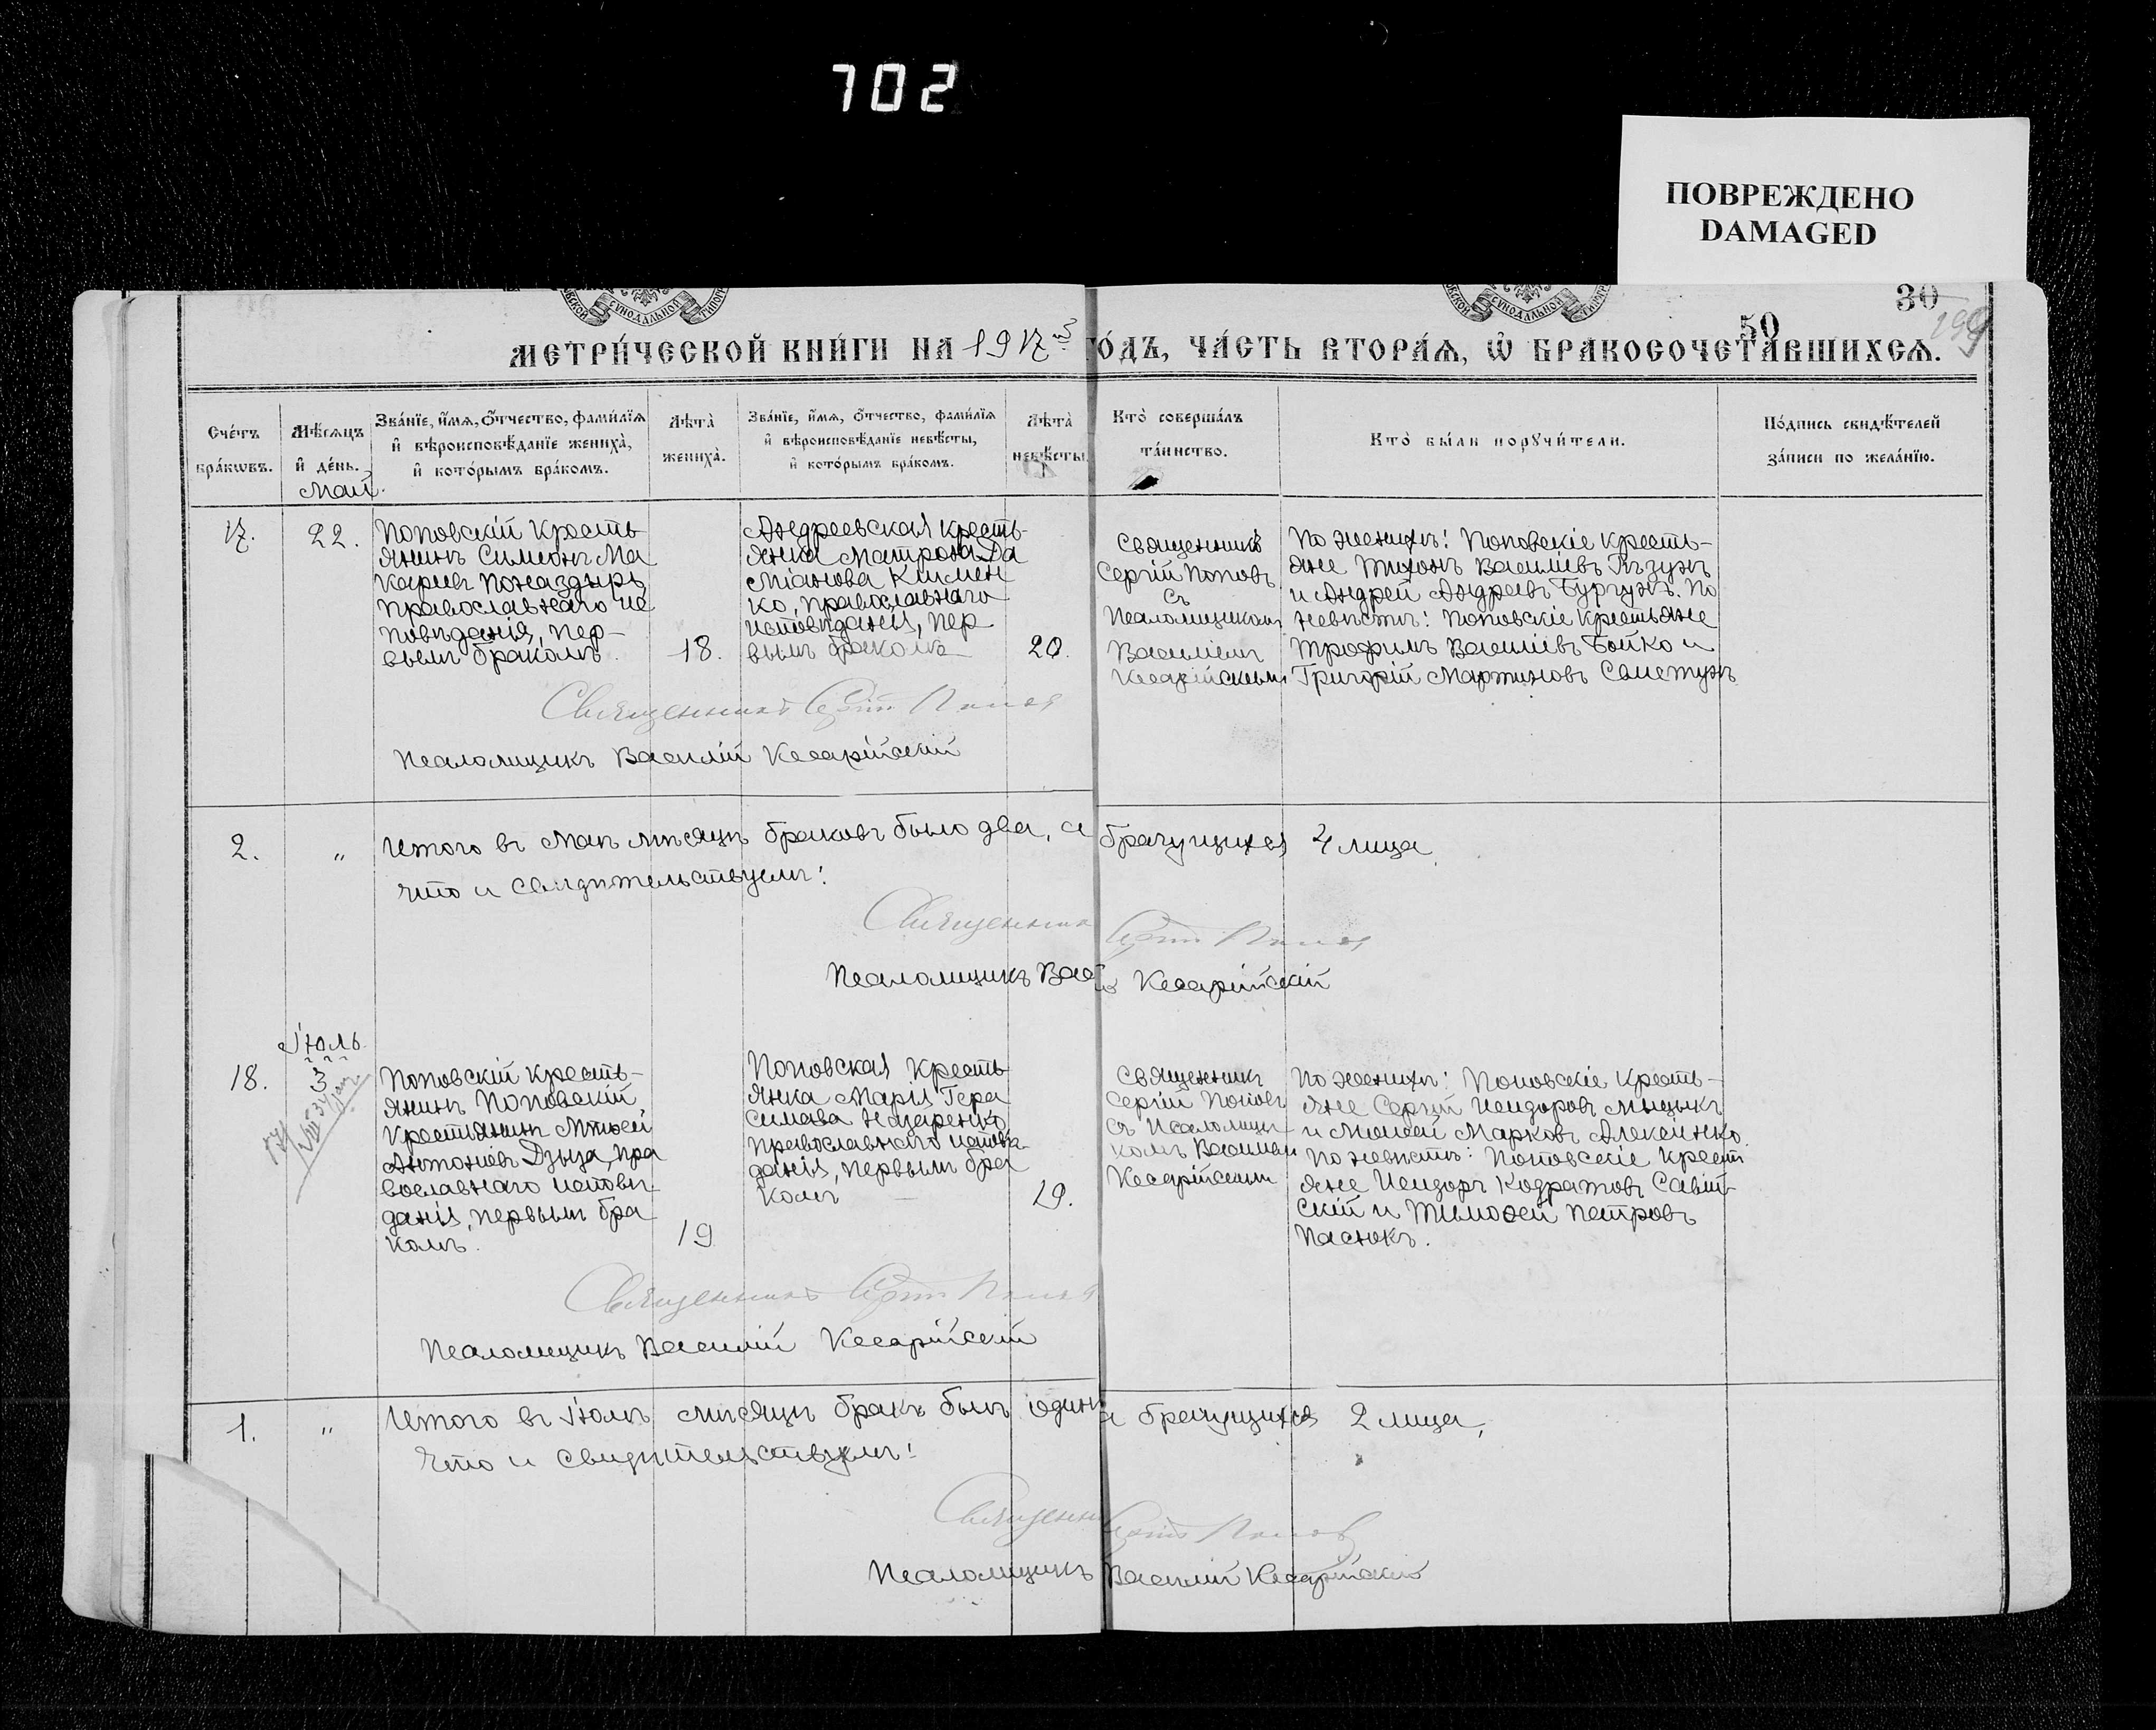 702
ПОВРЕЖДЕНО
DAMAGED
30
50
МЕТРИ́ЧЕСКОЙ КНИ́ГИ НА 1917 го́дъ, ЧА́СТЬ ВТОРА́Ѧ, Ѽ БРАКОСОЧЕТА́ВШИХСѦ.
Сче́тъ бра́кѡвъ.
Мѣ́сѧцъ и҆ де́нь.
Зва́нїе, и҆́мѧ, ѻ҆́тчество, фами́лїѧ и҆ вѣроисповѣ́данїе жениха̀, и҆ кото́рымъ бра́комъ.
Лѣ́та жениха̀.
Зва́нїе, и҆́мѧ, ѻ҆́тчество, фами́лїѧ и҆ вѣроисповѣ́данїе невѣ́сты, и҆ кото́рымъ бра́комъ.
Лѣ́та невѣ́сты.
Кто̀ соверша́лъ та́инство.
Кто̀ бы́ли порꙋчи́тели.
По́дпись свидѣ́телей за́писи по жела́нїю.
Май.
17.
22.
Поповскій кресть
янинъ Симеонъ Ма
каріевъ Поназдырь
православнаго ис
повѣданія, пер-
вымъ бракомъ.
18.
Андреевская кресть-
янка Матрона Да
міанова Климен
ко, православнаго
исповѣданія, пер
вымъ бракомъ
20.
Священникъ
Сергій Поповъ
съ
Псаломщикомъ
Василіемъ
Кесарійскимъ
По женихѣ: Поповскіе кресть-
яне Тихонъ Василіевъ Тъзунъ
и Андрей Андреевъ Бургунъ. По
невѣстѣ: Поповскіе крестьяне
Трофимъ Василіевъ Бойко и
Григорій Мартиновъ Свистунъ
Священникъ Сергій Поповъ
Псаломщикъ Василій Кесарійскій
2.
"
Итого въ маѣ мѣсяцѣ браковъ было два, а брачущихся 4 лица,
что и свидѣтельствуемъ:
Священникъ Сергій Поповъ
Псаломщикъ Вас Кесарійскій
Іюль
18.
3
Поповскій кресть-
янинъ Поповскій
крестьянинъ Моисей
Антоновъ Дзыза, пра
вославнаго исповѣ
данія, первымъ бра
комъ.
19
Поповская кресть
янка Марія Гера
симова Назаренко,
православнаго исповѣ
данія, первымъ бра
комъ
19.
Священникъ
Сергій Поповъ
съ Псаломщи
комъ Василіем
Кесарійскимъ
По женихѣ: Поповскіе кресть-
яне Сергій Исидоровъ Мыцыкъ
и Моисей Марковъ Алексѣенко.
По невѣстѣ: Поповскіе крест
яне Исидоръ Кодратовъ Савій-
скій и Тимоѳей Петровъ
Пасюкъ.
Священникъ Сергій Поповъ
Псаломщикъ Василій Кесарійскій
1.
"
Итого въ Іюлѣ мѣсяцѣ бракъ былъ одинъ а брачущихся 2 лица,
что и свидѣтельствуемъ:
Священн Сергій Поповъ
Псаломщикъ Василій Кесарійскій